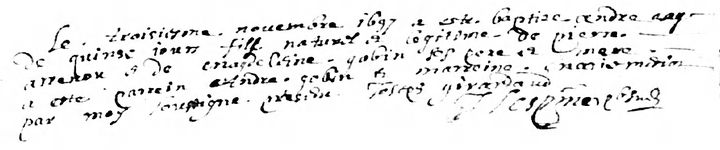 Le troisiesme novembre 1697 a este baptize andre aagé
de quinze jours fils naturel et legitime de pierre
arrenou et de magdeleine gobin ses pere et mere
a este parrein andre gobin et marreine marie
par moy soussigne present Joseph girardaud